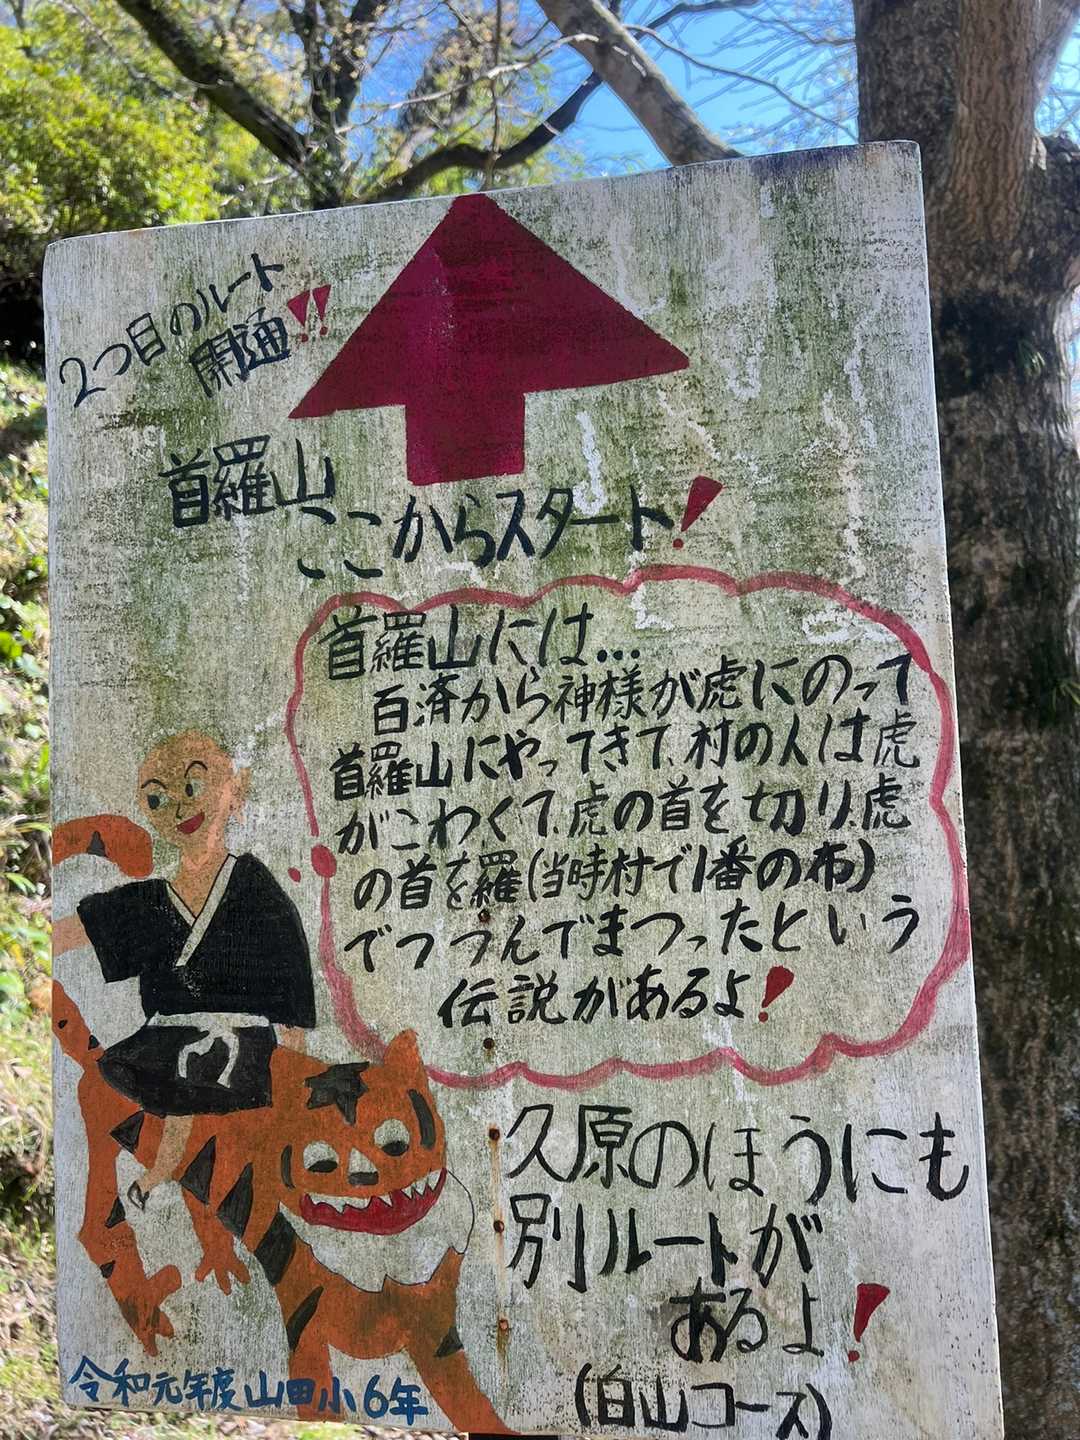 2つ目のルート
開通!!
首羅山
ここからスタート!
首羅山には…
百済から神様が虎にのって
首羅山にやってきて、村の人は虎
がこわくて、虎の首を切り、虎
の首を羅(当時村で1番の布)
でつつんでまつったという
伝説があるよ!
久原のほうにも
別ルートが
あるよ!
(白山コース)
令和元年度山田小6年